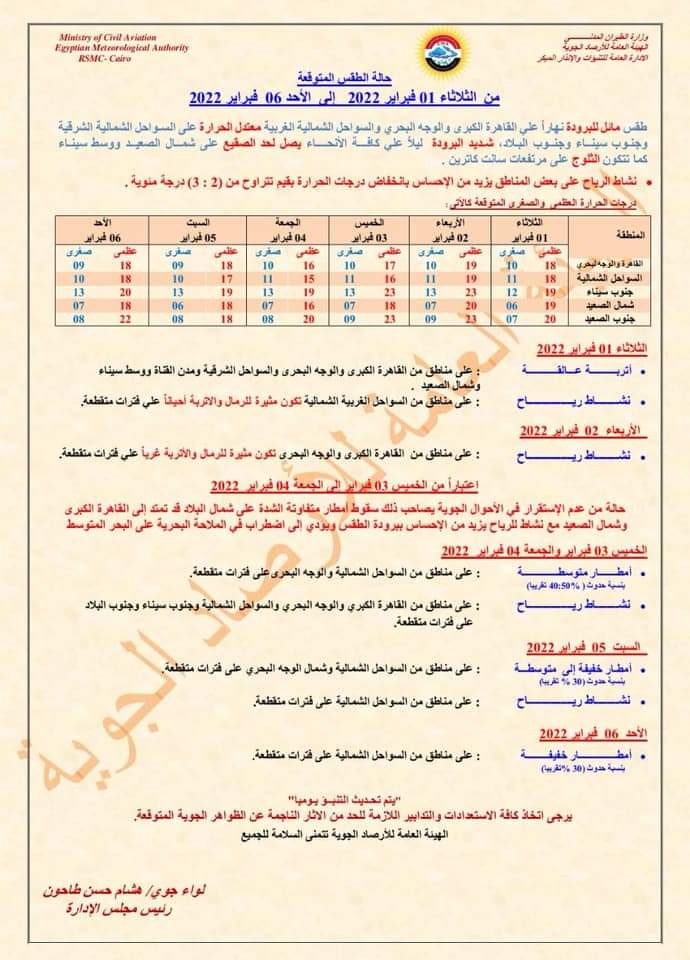 Ministry of Civil Aviation
Egyptian Meteorological Authority
RSMC- Cairo
وزارة الطيران المدنـــي
الهيئة العامة للأرصاد الجوية
الادارة العامة للتنبؤات والإنذار المبكر
حالة الطقس المتوقعة
من الثلاثاء 01 فبراير 2022 إلى الأحد 06 فبراير 2022
طقس مائل للبرودة نهاراً علي القاهرة الكبرى والوجه البحري والسواحل الشمالية الغربية معتدل الحرارة على السواحل الشمالية الشرقية
وجنوب سيناء وجنوب البلاد، شديد البرودة ليلاً علي كافة الأنحاء يصل لحد الصقيع على شمال الصعيد ووسط سيناء
كما تتكون الثلوج على مرتفعات سانت كاترين .
• نشاط الرياح على بعض المناطق يزيد من الإحساس بانخفاض درجات الحرارة بقيم تتراوح من (2 : 3) درجة مئوية .
درجات الحرارة العظمى والصغرى المتوقعة كالآتي:
المنطقة الثلاثاء 01 فبراير الأربعاء 02 فبراير الخميس 03 فبراير الجمعة 04 فبراير السبت 05 فبراير الأحد 06 فبراير
عظمى صغرى عظمى صغرى عظمى صغرى عظمى صغرى عظمى صغرى عظمى صغرى
القاهرة والوجه البحرى 18 10 19 10 17 10 16 10 18 09 18 09
السواحل الشمالية 18 11 19 11 16 11 15 11 17 10 18 10
جنوب سيناء 19 12 23 13 23 13 19 13 19 13 20 13
شمال الصعيد 19 06 20 07 18 07 16 07 18 06 18 07
جنوب الصعيد 20 07 23 09 23 09 20 08 18 08 22 08
الثلاثاء 01 فبراير 2022
• أتربـــة عـالقـــة : على مناطق من القاهرة الكبرى والوجه البحرى والسواحل الشرقية ومدن القناة ووسط سيناء
وشمال الصعيد .
• نشـــاط ريـــاح : على مناطق من السواحل الغربية الشمالية تكون مثيرة للرمال والاتربة أحياناً علي فترات متقطعة.
الأربعاء 02 فبراير 2022
• نشـــاط ريـــاح : على مناطق من القاهرة الكبرى والوجه البحرى تكون مثيرة للرمال والأتربة غرباً علي فترات متقطعة.
إعتباراً من الخميس 03 فبراير إلى الجمعة 04 فبراير 2022
حالة من عدم الإستقرار في الأحوال الجوية يصاحب ذلك سقوط أمطار متفاوتة الشدة على شمال البلاد قد تمتد إلى القاهرة الكبرى
وشمال الصعيد مع نشاط للرياح يزيد من الإحساس ببرودة الطقس ويودي إلى اضطراب في الملاحة البحرية على البحر المتوسط
الخميس 03 فبراير والجمعة 04 فبراير 2022
• أمطـــار متوسطـــة : على مناطق من السواحل الشمالية والوجه البحرى على فترات متقطعة.
بنسبة حدوث ( 40:50% تقريبا)
• نشـــاط ريـــاح : على مناطق من القاهرة الكبري والوجه البحري والسواحل الشمالية وجنوب سيناء وجنوب البلاد
على فترات متقطعة.
السبت 05 فبراير 2022
• أمطار خفيفة إلى متوسطة : على مناطق من السواحل الشمالية وشمال الوجه البحري على فترات متقطعة.
بنسبة حدوث (30 % تقريبا)
• نشـــاط ريـــاح : على مناطق من السواحل الشمالية على فترات متقطعة.
الأحد 06 فبراير 2022
• أمطـــار خفيفـــة : على مناطق من السواحل الشمالية على فترات متقطعة.
بنسبة حدوث (30 %تقريبا)
"يتم تحديث التنبؤ يوميا"
يرجى اتخاذ كافة الاستعدادات والتدابير اللازمة للحد من الاثار الناجمة عن الظواهر الجوية المتوقعة.
الهيئة العامة للأرصاد الجوية تتمنى السلامة للجميع
لواء جوي/ هشام حسن طاحون
رئيس مجلس الإدارة
الهيئة العامة للأرصاد الجوية